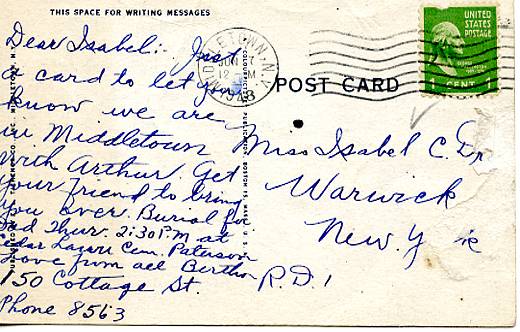 THIS SPACE FOR WRITING MESSAGES
Dear Isabel:- Just
a card to let you
know we are
in Middletown
with Arthur. Get
your friend to bring
you over. Burial for
Dad Thur. 2:30 P.M at
Cedar Lawn Cem. Paterson
Love from all
150 Cottage St.
Phone 8563
MIDDLETOWN, N.Y.
JUN
12 M
1948
POST CARD
UNITED
STATES
POSTAGE
1 CENT 1
Miss Isabel C.
Warwick
New. Y
R.D. 1